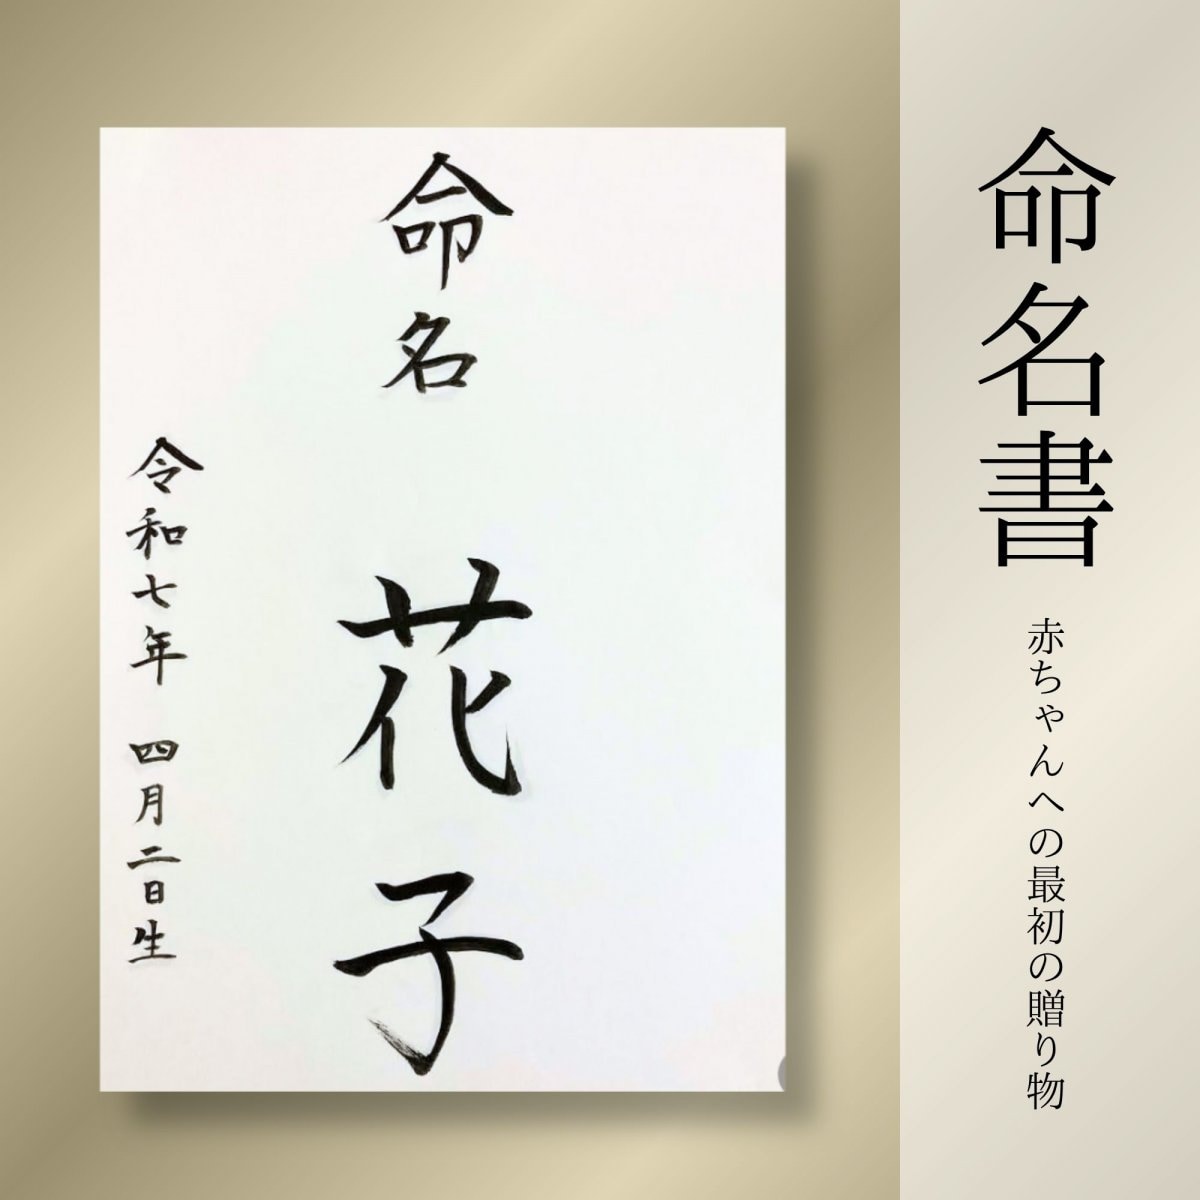 命名書
赤ちゃんへの最初の贈り物
命名 花子
令和七年 四月二日生